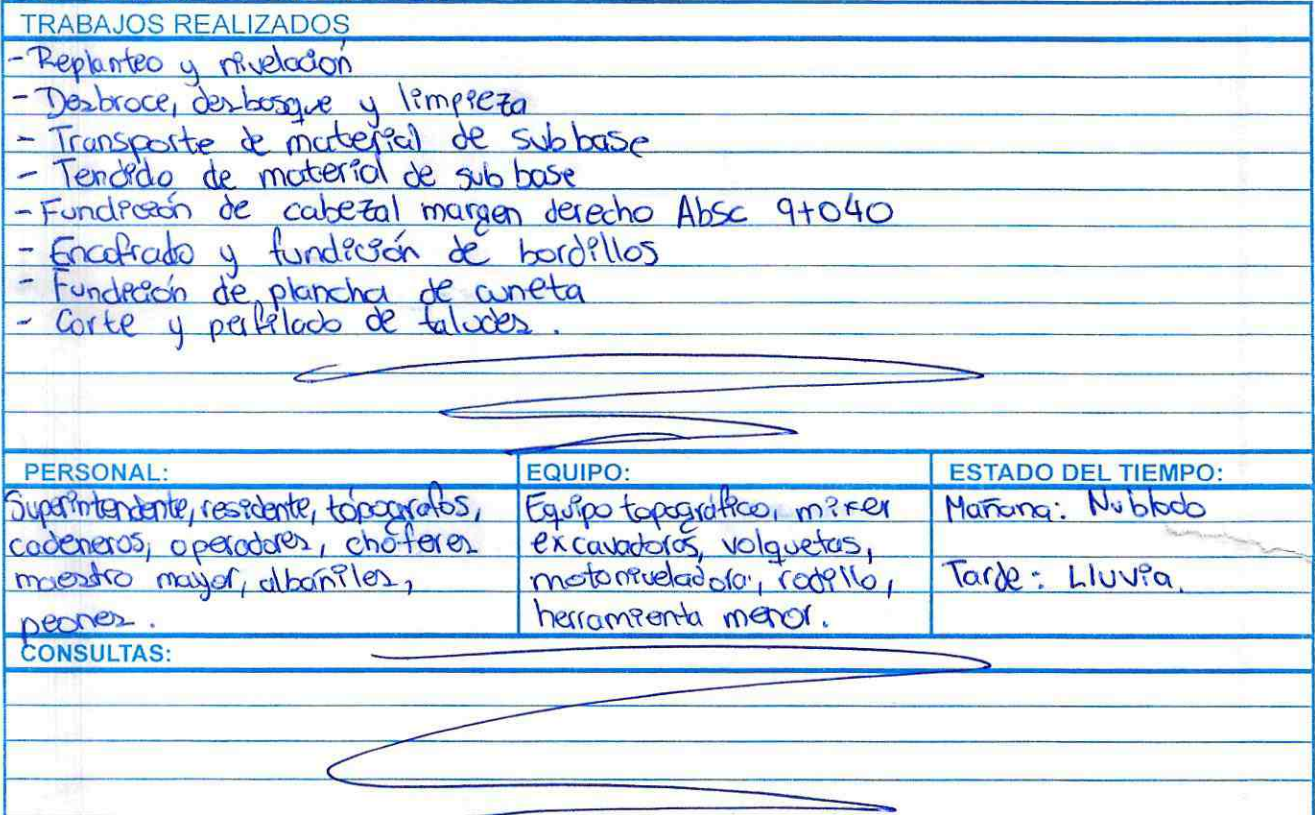 TRABAJOS REALIZADOS
- Replanteo y nivelación
- Desbroce, desbosque y limpieza
- Transporte de material de sub base
- Tendido de material de sub base
- Fundición de cabezal margen derecho Absc 9+040
- Encofrado y fundición de bordillos
- Fundición de plancha de cuneta
- Corte y perfilado de taludes.
PERSONAL:
Superintendente, residente, topografos,
cadeneros, operadores, choferes
maestro mayor, albañiles,
peones.
EQUIPO:
Equipo topográfico, mixer
excavadoras, volquetas,
motoniveladora, rodillo,
herramienta menor.
ESTADO DEL TIEMPO:
Mañana: Nublado
Tarde: Lluvia.
CONSULTAS: